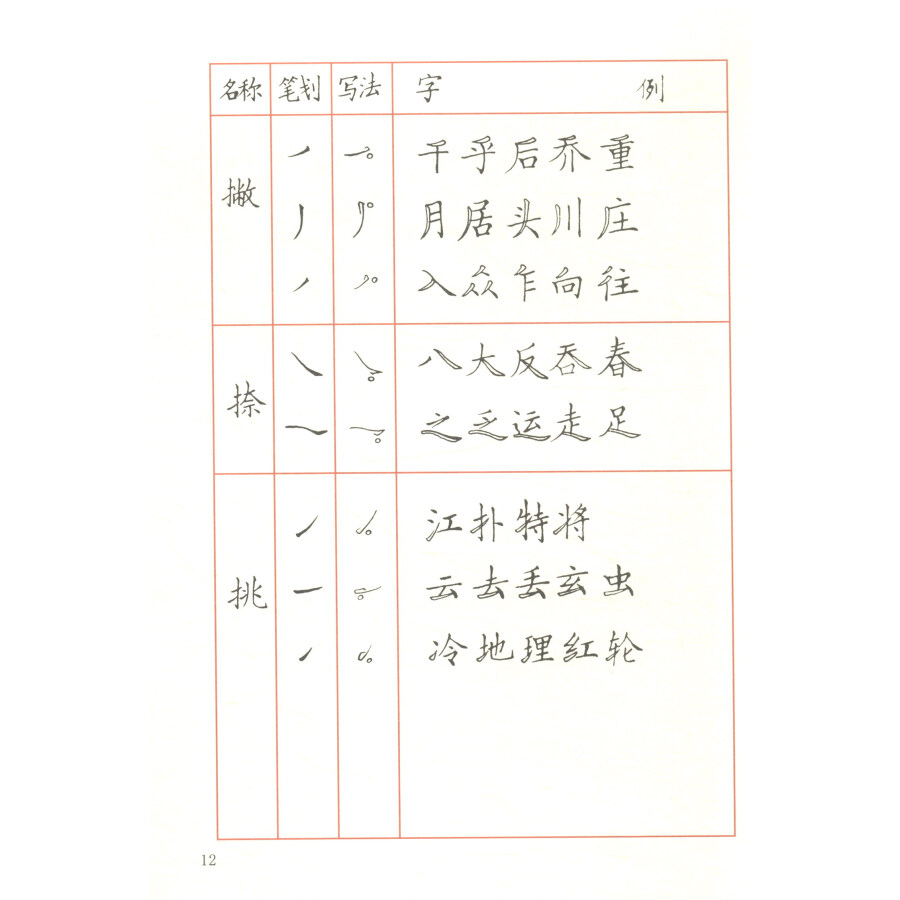 名称 笔划 写法 字 例
撇
千乎后乔重
月居头川庄
入众乍向往
捺
八大反吞春
之乏运走足
挑
江扑特将
云去丢玄虫
冷地理红轮
12